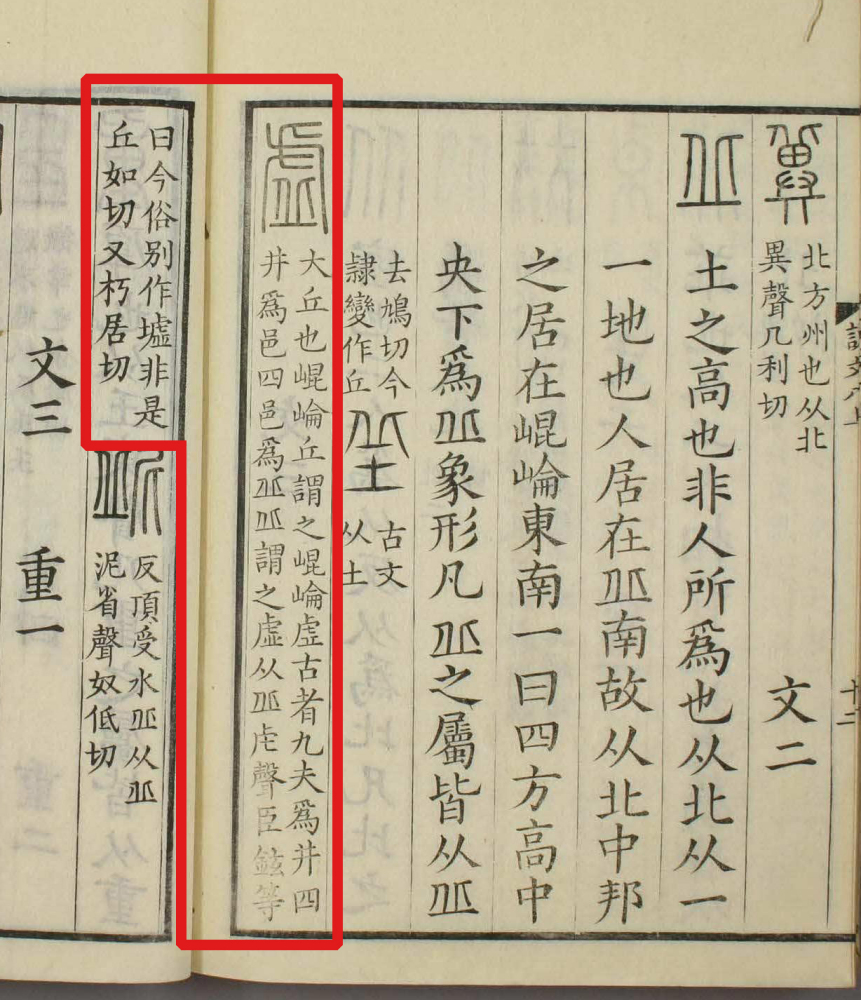 說文八上
十二
冀
北方州也从北
異聲几利切
文二
丠土之高也非人所爲也从北从一
一地也人居在丠南故从北中邦
之居在崐崘東南一曰四方高中
央下爲丠象形凡丠之屬皆从丠
去鳩切今
隸變作丘
𡊣
古文
从土
虛
大丘也崐崘丘謂之崐崘虛古者九夫爲井四
井爲邑四邑爲丠丠謂之虛从丠虍聲臣鉉等
曰今俗别作墟非是
丘如切又朽居切
屔
反頂受水丠从丠
泥省聲奴低切
文三 重一